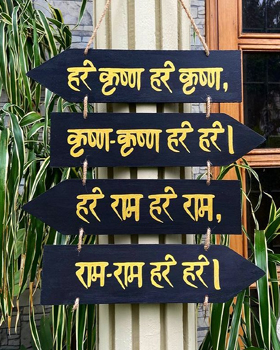 हरे कृष्ण हरे कृष्ण,
कृष्ण-कृष्ण हरे हरे।
हरे राम हरे राम,
राम-राम हरे हरे।